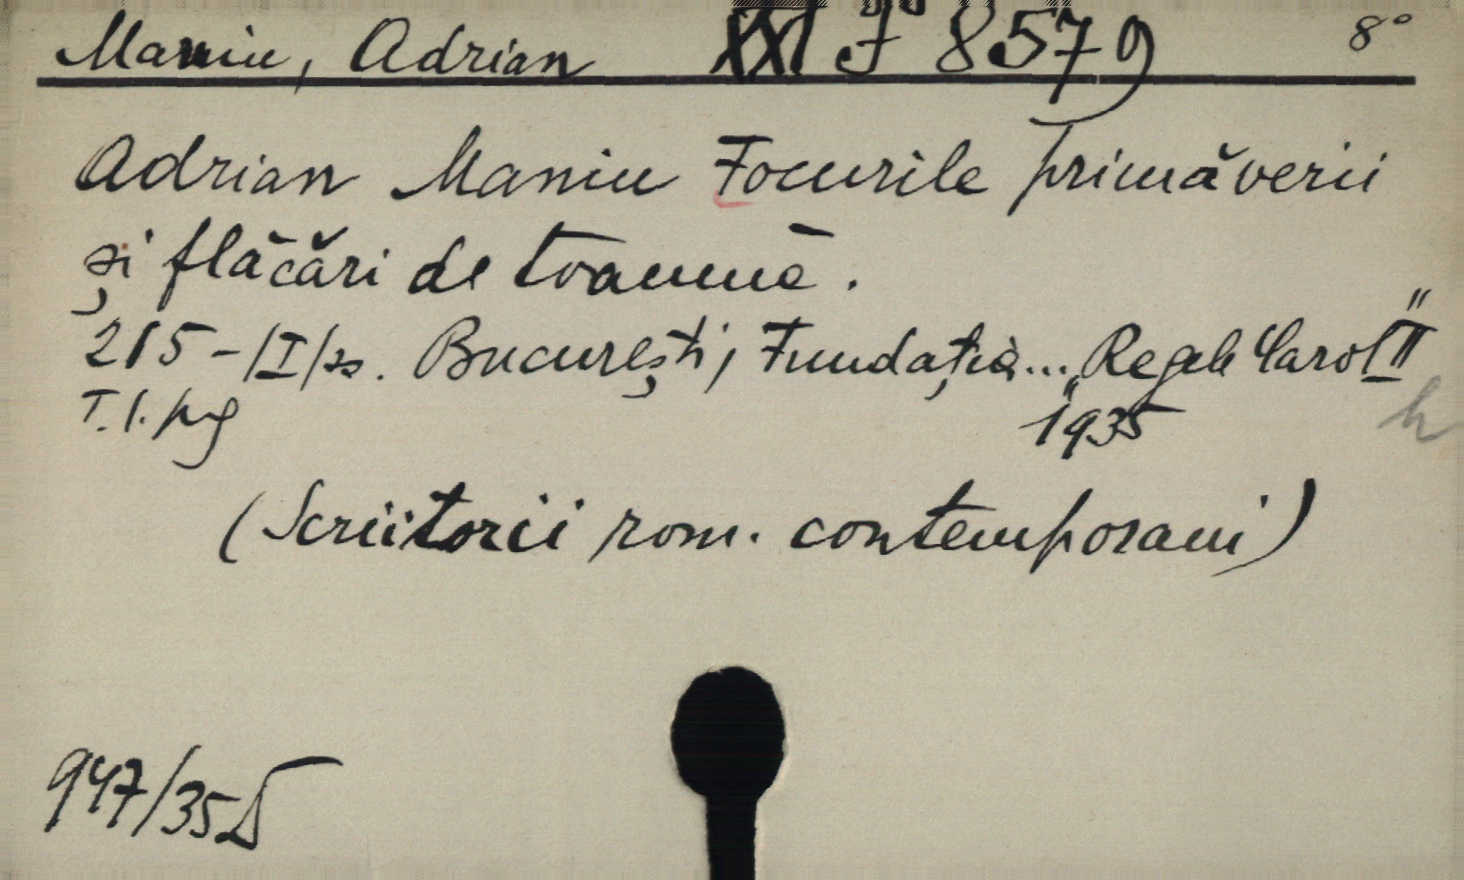 Maniu, Adrian XXI J° 8579 8°
Adrian Maniu Focurile primăverii
și flăcări de toamnă.
215-/I/ss. București, Fundația... „Regele Carol II"
T.l.pg 1935
(Scriitorii rom. contemporani)
947/35D